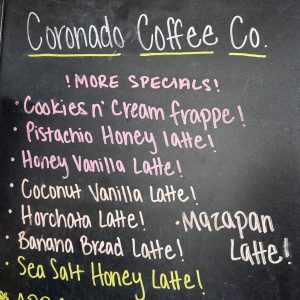 Coronado Coffee Co.
!MORE SPECIALS!
· Cookies n' Cream frappe!
· Pistachio Honey latte!
· Honey Vanilla Latte!
· Coconut Vanilla Latte!
· Horchata Latte!
· Banana Bread Latte!
· Mazapan
Latte!
· Sea Salt Honey Latte!